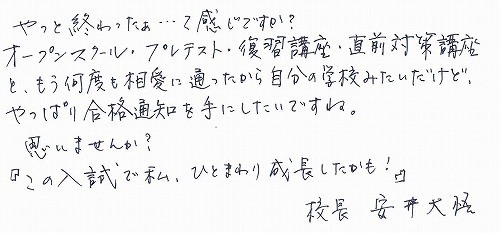 やっと終わったぁ…て感じですか?
オープンスクール・プレテスト・復習講座・直前対策講座
と、もう何度も相愛に通ったから自分の学校みたいだけど、
やっぱり合格通知を手にしたいですね。
思いませんか?
『この入試で私、ひとまわり成長したかも!』
校長 安井大悟